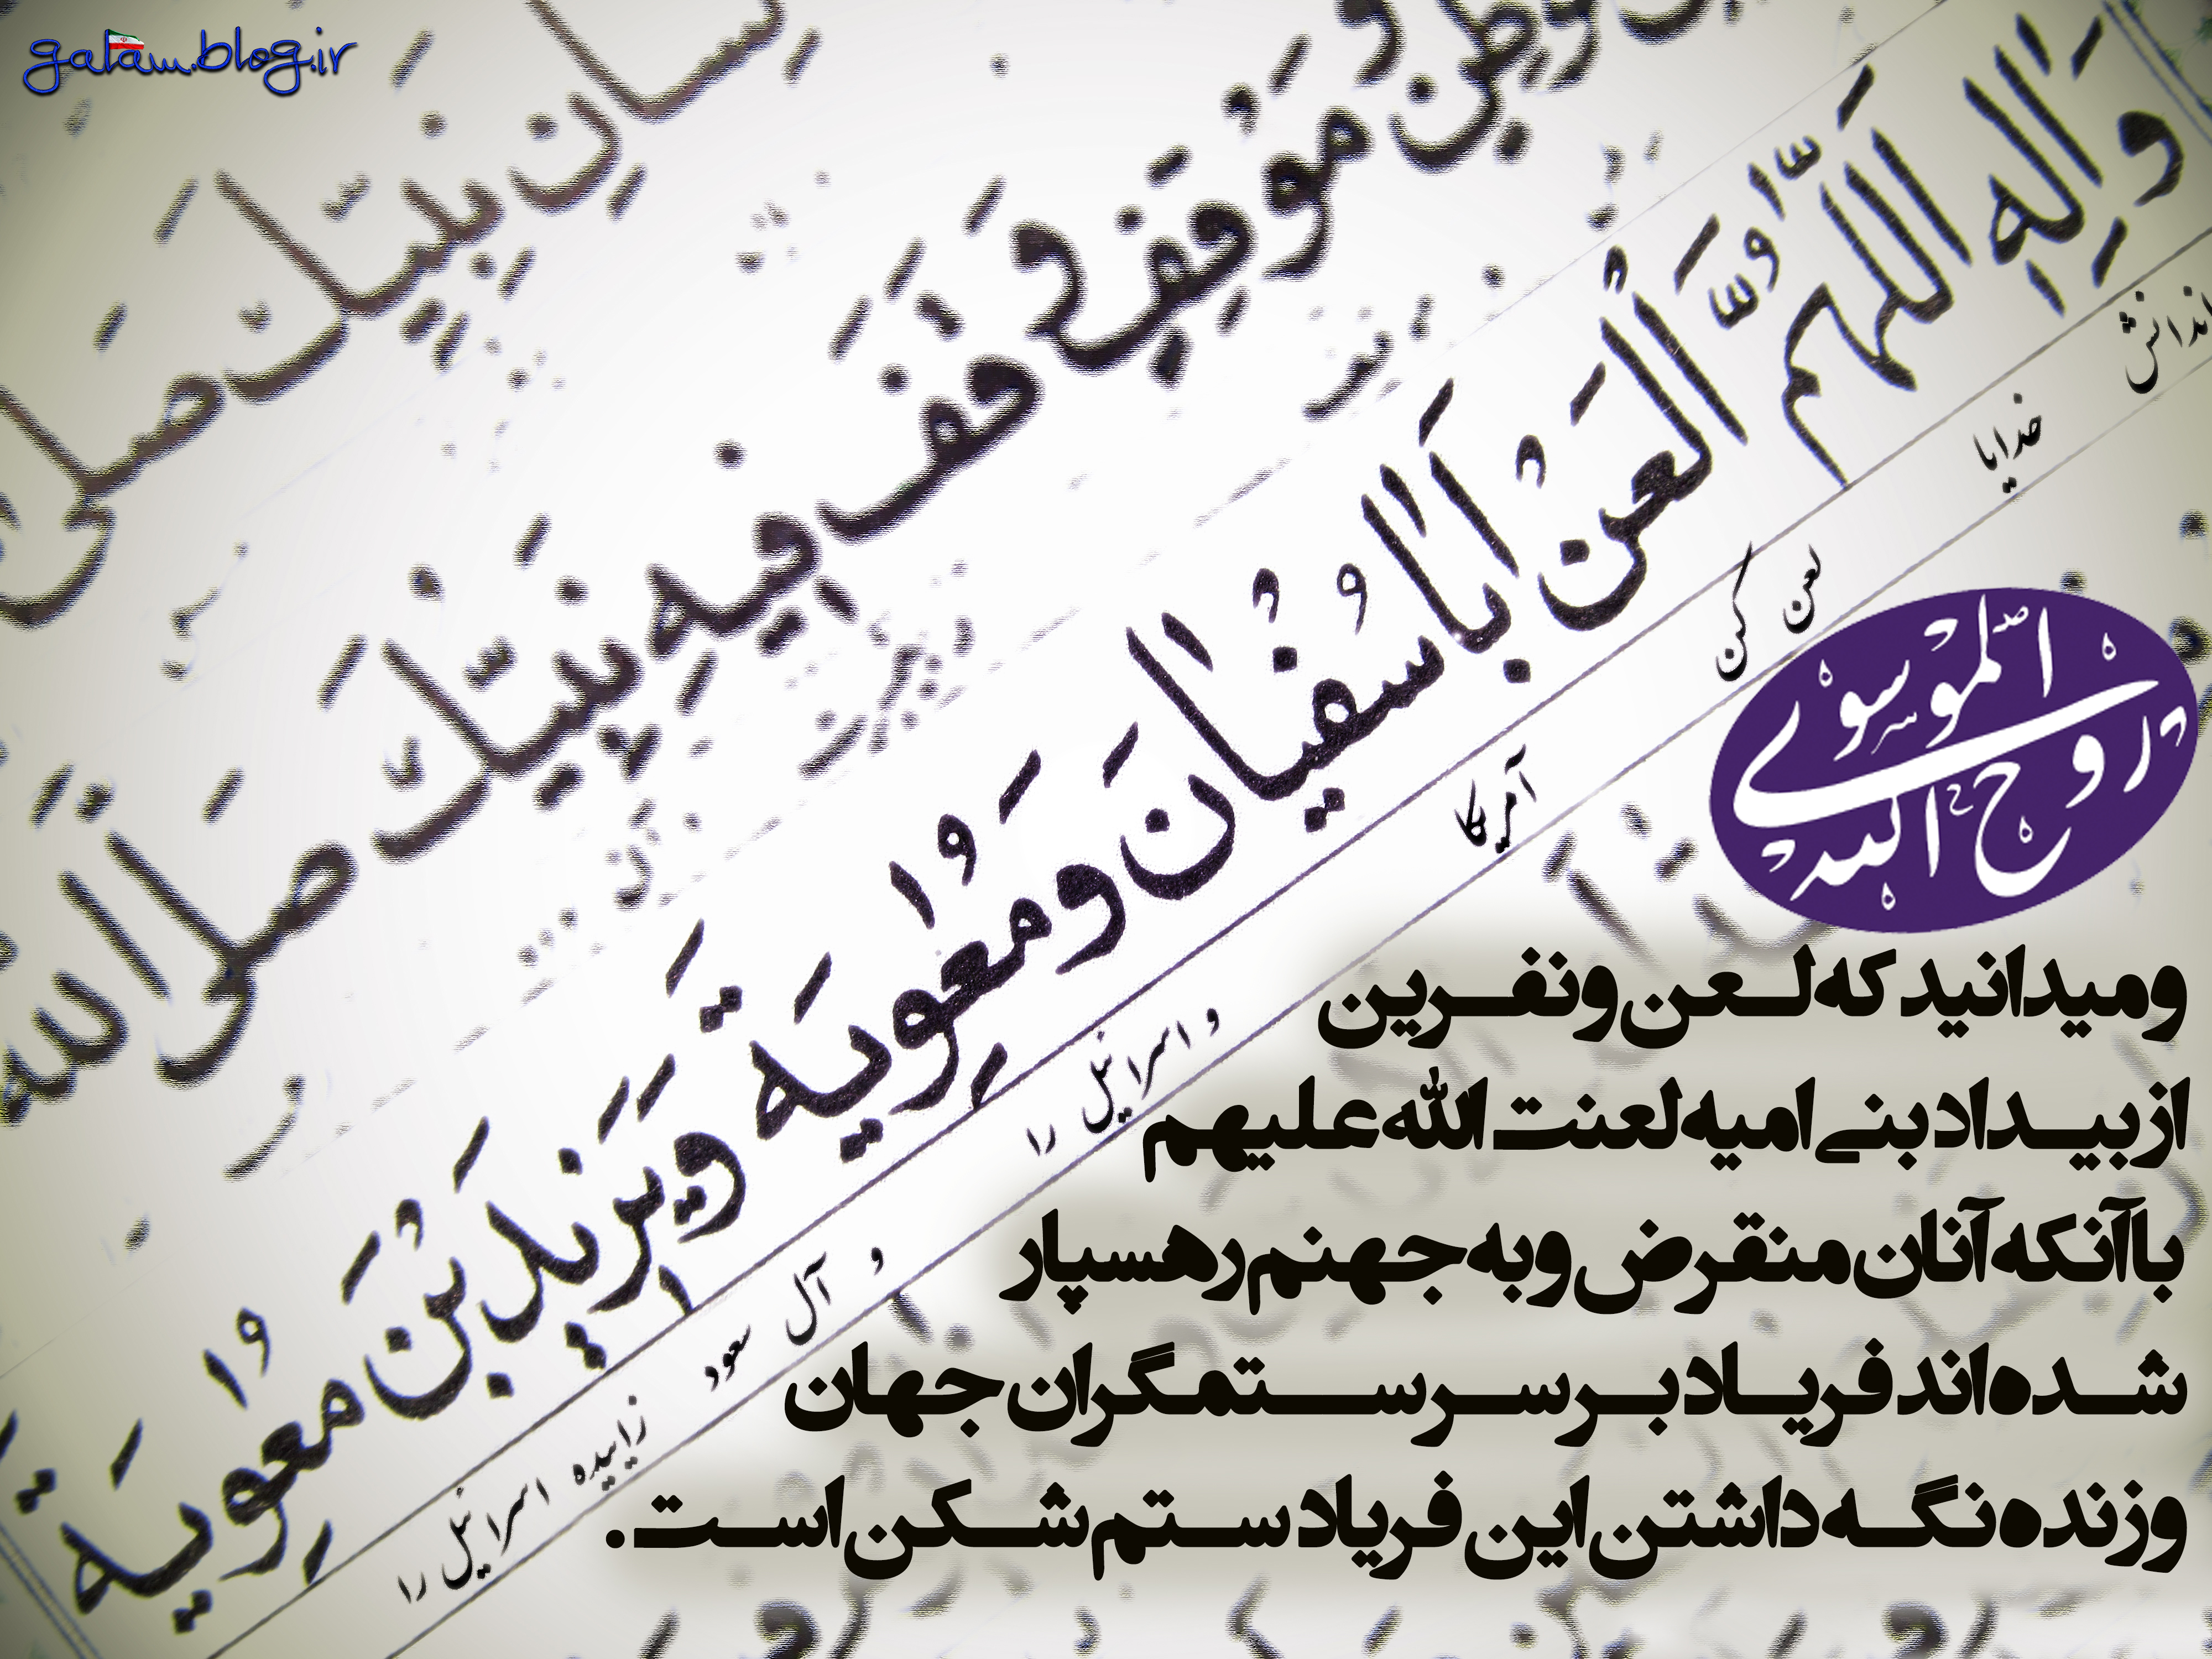 galam.blog.ir
ِسانِ نَبِيِّكَ صَلَّى
مَوْطِنٍ وَمَوْقِفٍ وَقَفَ فيهِ نَبِيُّكَ صَلَّى اللّهُ
وَآلِهِ اَللّهُمَّ الْعَنْ اَباسُفْيانَ وَمُعوِيَةَ وَيَزيدَ بْنَ مُعوِيَةَ
خدایا لعن کن آمریکا و اسرائیل را و آل سعود زاییده اسرائیل را
روح الله الموسوی
و میدانید که لعن و نفرین
از بیداد بنی امیه لعنت الله علیهم
با آنکه آنان منقرض و به جهنم رهسپار
شده اند فریاد بر سر ستمگران جهان
و زنده نگه داشتن این فریاد ستم شکن است.